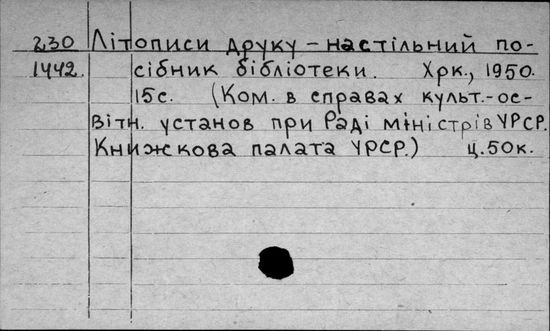 230 Літописи друку – настільний по-
1442. сібник бібліотеки. Хрк., 1950.
15с. (Ком. в справах культ.-ос-
вітн. установ при Раді міністрів УРСР.
Книжкова палата УРСР.) ц.50к.